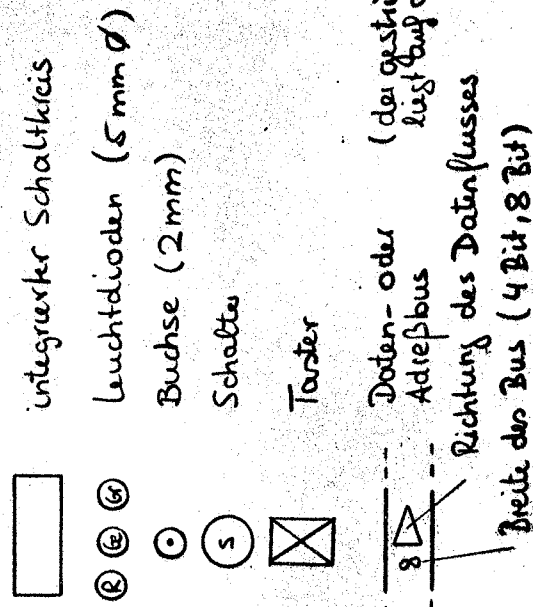 integrierter Schaltkreis
R Ge Gr Leuchtdioden (5 mm ø)
Buchse (2mm)
S Schalter
Taster
Daten- oder (der
Adreßbus liegt auf
8 Richtung des Datenflusses
Breite des Bus (4 Bit, 8 Bit)